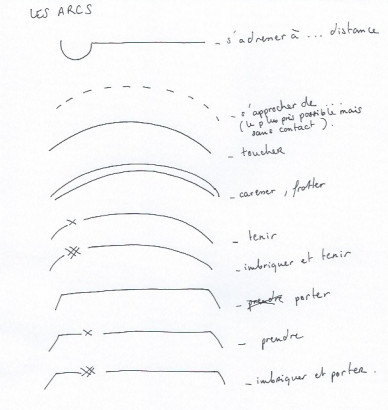 LES ARCS
- s'adresser à ... distance
- s'approcher de ...
(le plus près possible mais
sans contact).
- toucher
- caresser, frotter
- tenir
- imbriquer et tenir
- prendre porter
- prendre
- imbriquer et porter.